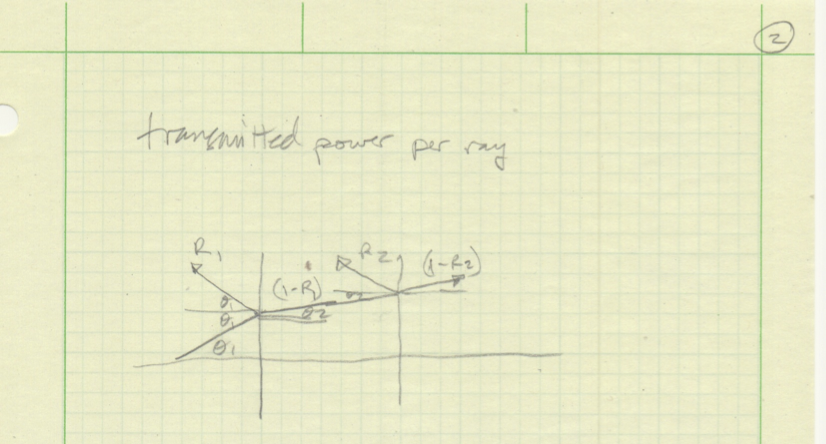 2
transmitted power per ray
R1 R2 (1-R2)
(1-R1)
θ1
θ1 θ2
θ1